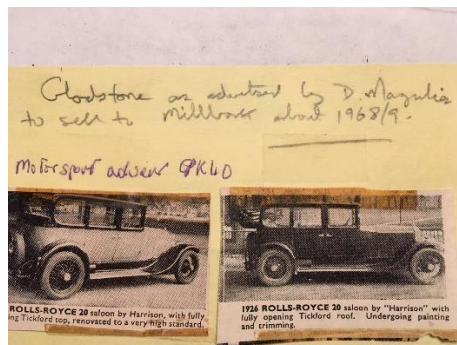 Gladstone as advertised by D. Margulies
to sell to Millbank about 1968/9.
Motorsport advert GPK40
ROLLS-ROYCE 20 saloon by Harrison, with fully
ing Tickford top, renovated to a very high standard.
1926 ROLLS-ROYCE 20 saloon by "Harrison" with
fully opening Tickford roof. Undergoing painting
and trimming.